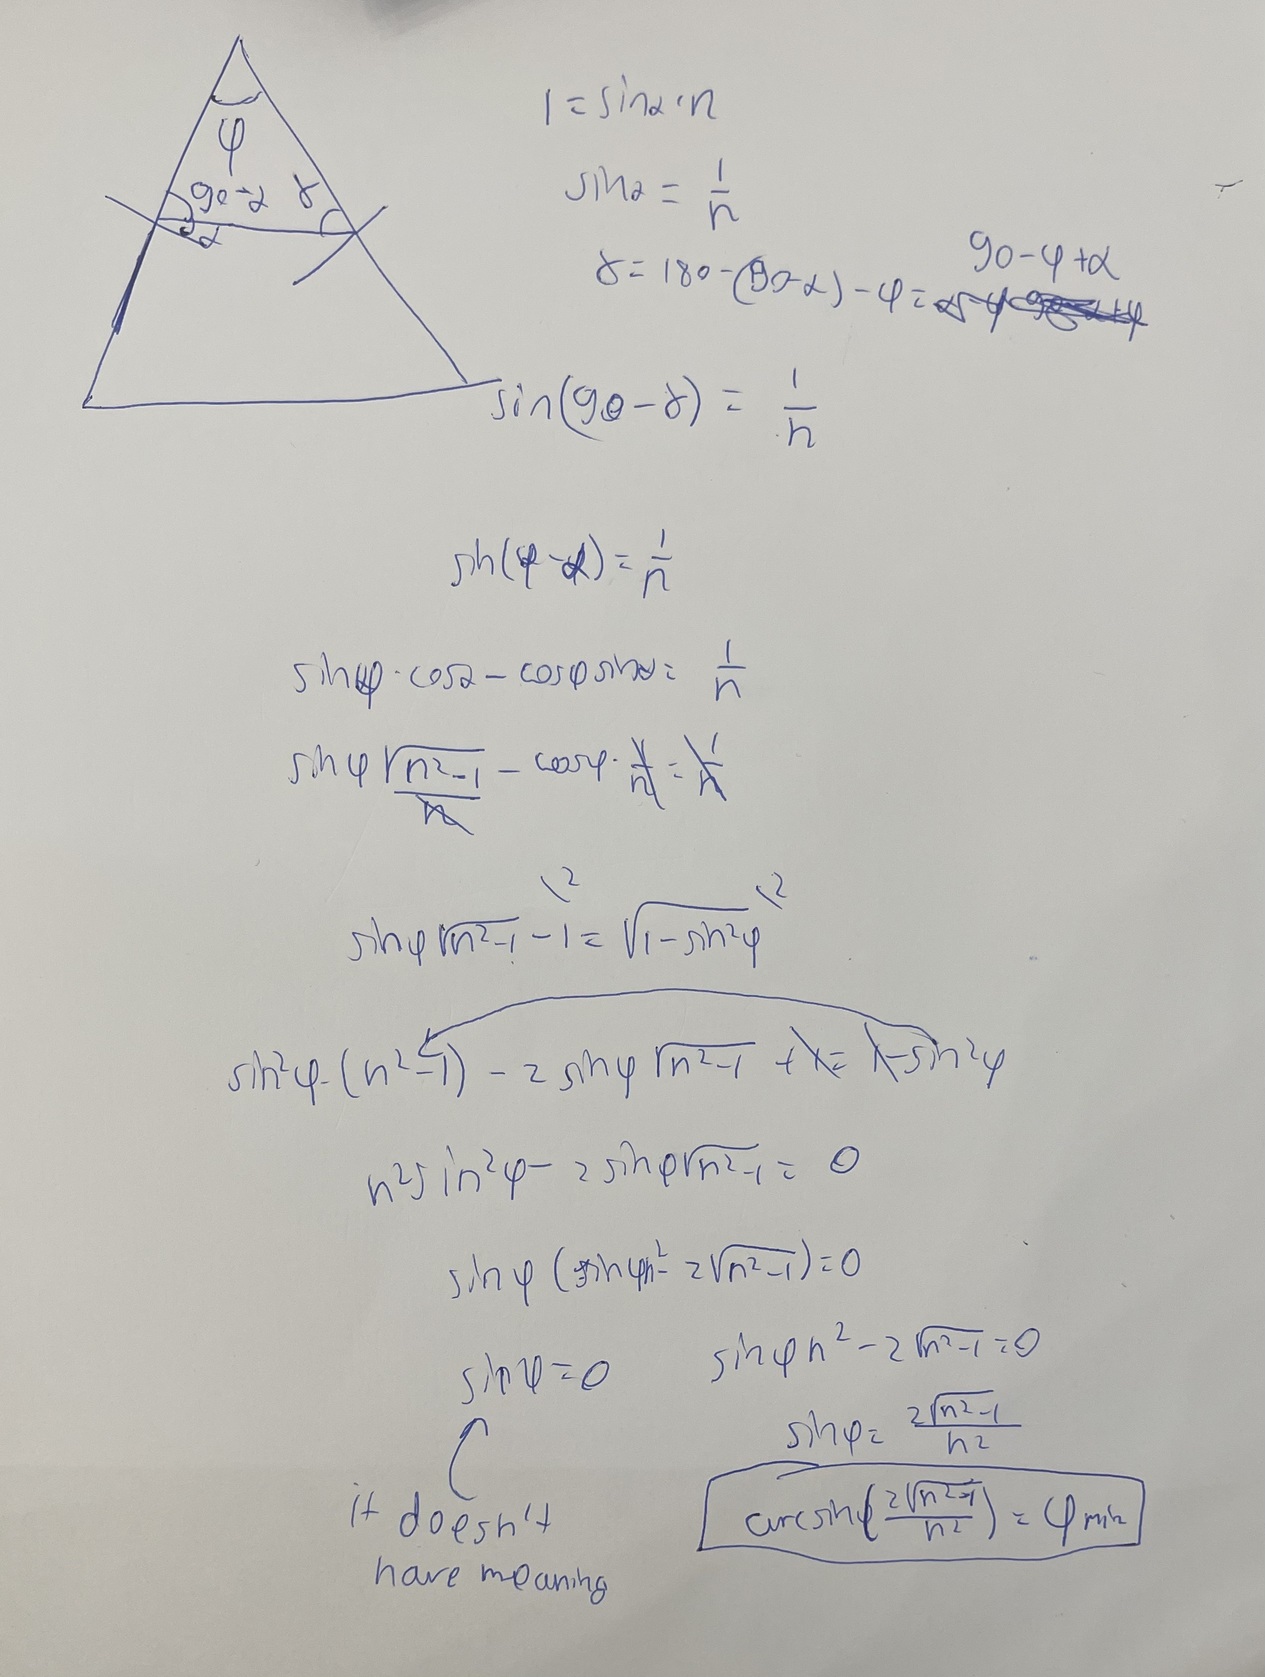 φ
90-α γ
α
1 = sinα·n
sinα = 1/n
γ = 180-(90-α)-φ = 90-φ+α
sin(90-γ) = 1/n
sin(φ-α) = 1/n
sinφ·cosα - cosφ sinα = 1/n
sinφ √(n²-1)/n - cosφ·1/n = 1/n
\² \²
sinφ√(n²-1) - 1 = √(1-sin²φ)
sin²φ·(n²-1) - 2sinφ√(n²-1) + 1 = 1-sin²φ
n²sin²φ - 2sinφ√(n²-1) = 0
sinφ(sinφn² - 2√(n²-1)) = 0
sinφ=0 sinφn² - 2√(n²-1) = 0
sinφ = 2√(n²-1)/n²
it doesn't
have meaning
arcsin(2√(n²-1)/n²) = φmin